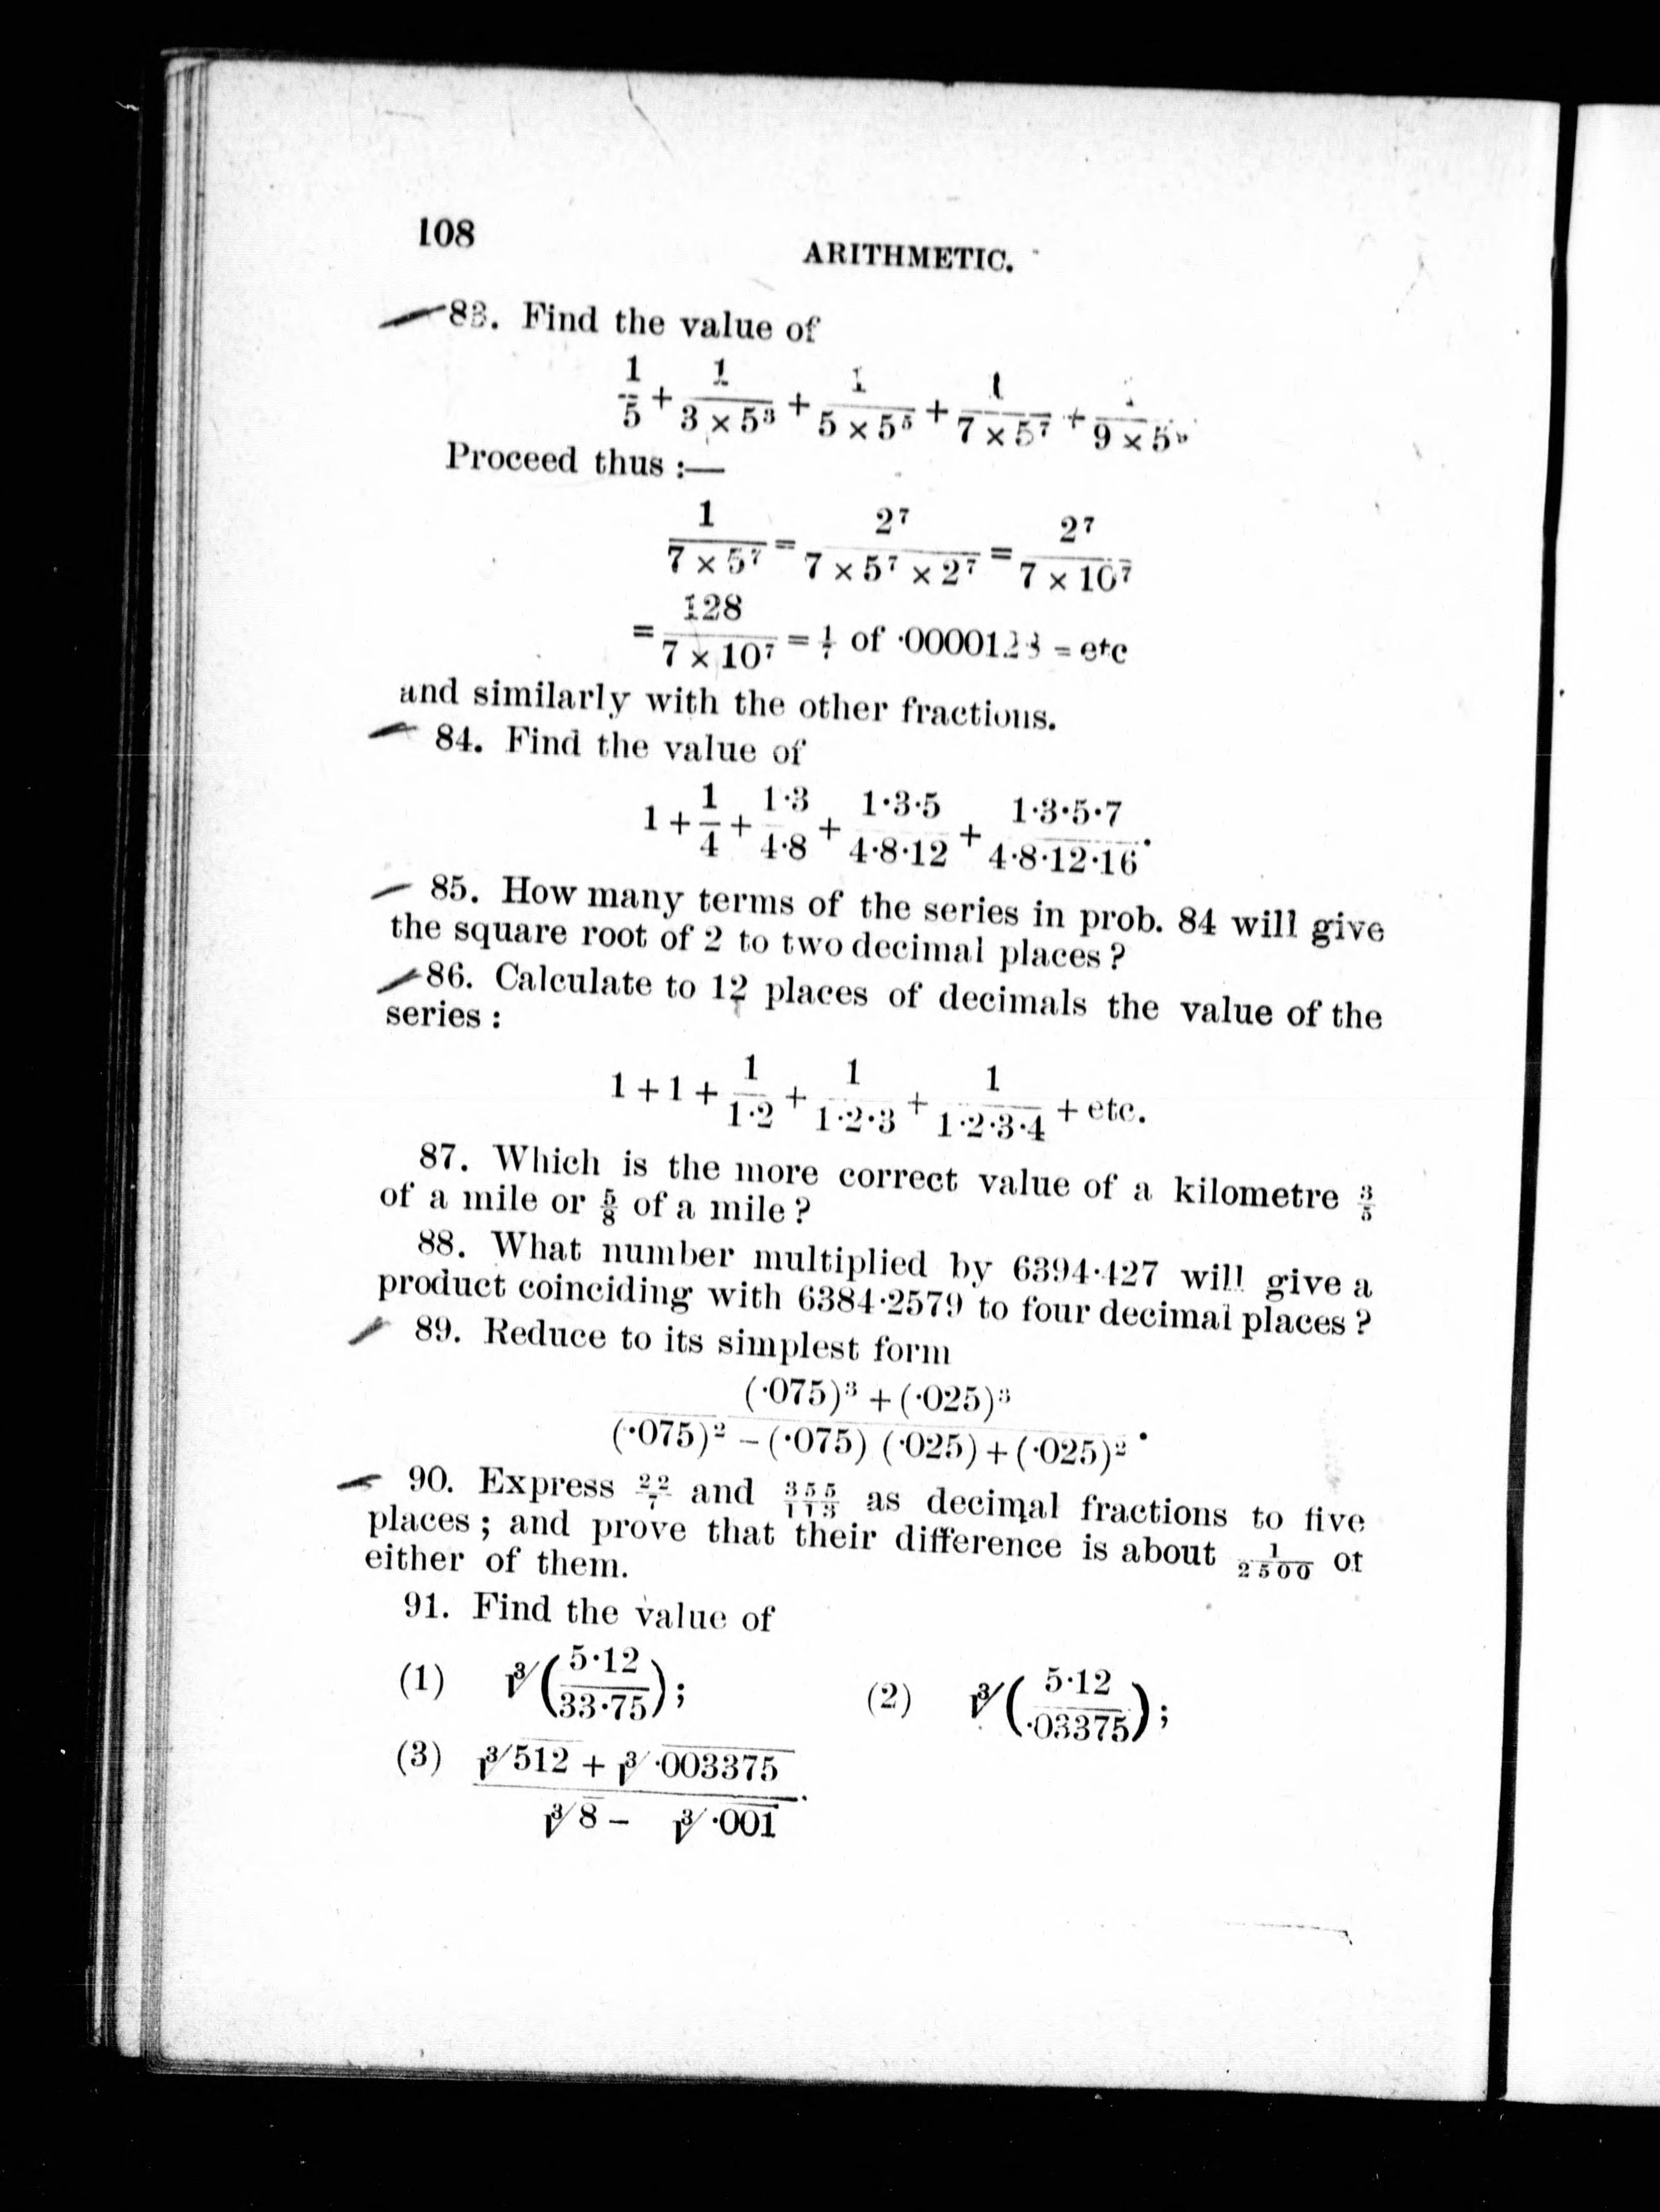 108
ARITHMETIC.
83. Find the value of
1/5 + 1/(3 × 5³) + 1/(5 × 5⁵) + 1/(7 × 5⁷) + 1/(9 × 5⁹)
Proceed thus :—
1/(7 × 5⁷) = 2⁷/(7 × 5⁷ × 2⁷) = 2⁷/(7 × 10⁷)
= 128/(7 × 10⁷) = 1/7 of ·0000128 = etc
and similarly with the other fractions.
84. Find the value of
1 + 1/4 + 1·3/4·8 + 1·3·5/4·8·12 + 1·3·5·7/4·8·12·16.
85. How many terms of the series in prob. 84 will give
the square root of 2 to two decimal places ?
86. Calculate to 12 places of decimals the value of the
series :
1 + 1 + 1/1·2 + 1/1·2·3 + 1/1·2·3·4 + etc.
87. Which is the more correct value of a kilometre 3/5
of a mile or 5/8 of a mile ?
88. What number multiplied by 6394·427 will give a
product coinciding with 6384·2579 to four decimal places ?
89. Reduce to its simplest form
((·075)³ + (·025)³)/((·075)² − (·075) (·025) + (·025)²).
90. Express 22/7 and 355/113 as decimal fractions to five
places ; and prove that their difference is about 1/2500 of
either of them.
91. Find the value of
(1) ∛(5·12/33·75) ; (2) ∛(5·12/·03375) ;
(3) (∛512 + ∛·003375)/(∛8 − ∛·001).